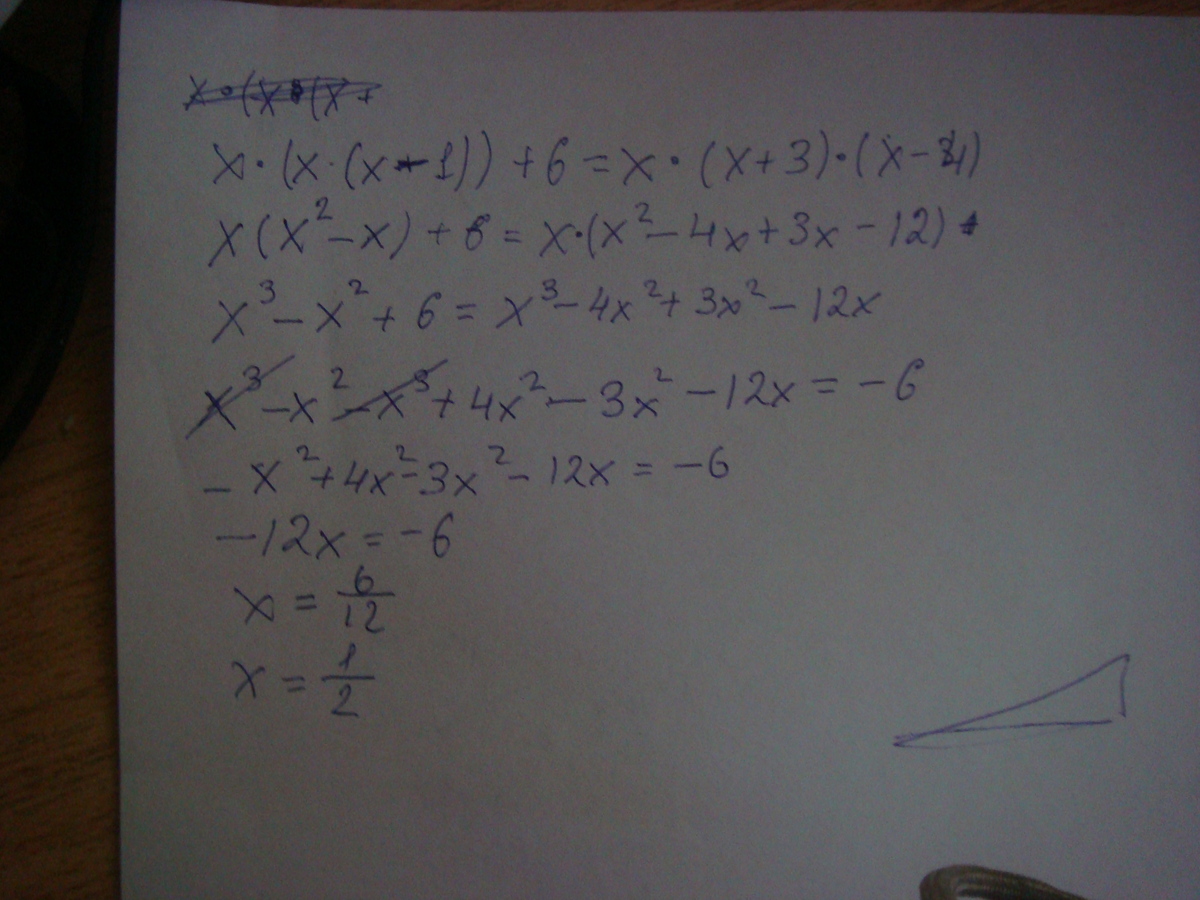 x·(x·(x
x·(x·(x-1))+6=x·(x+3)·(x-4)
x(x²-x)+6=x·(x²-4x+3x-12)
x³-x²+6=x³-4x²+3x²-12x
x³-x²-x³+4x²-3x²-12x=-6
-x²+4x²-3x²-12x=-6
-12x=-6
x=6/12
x=1/2